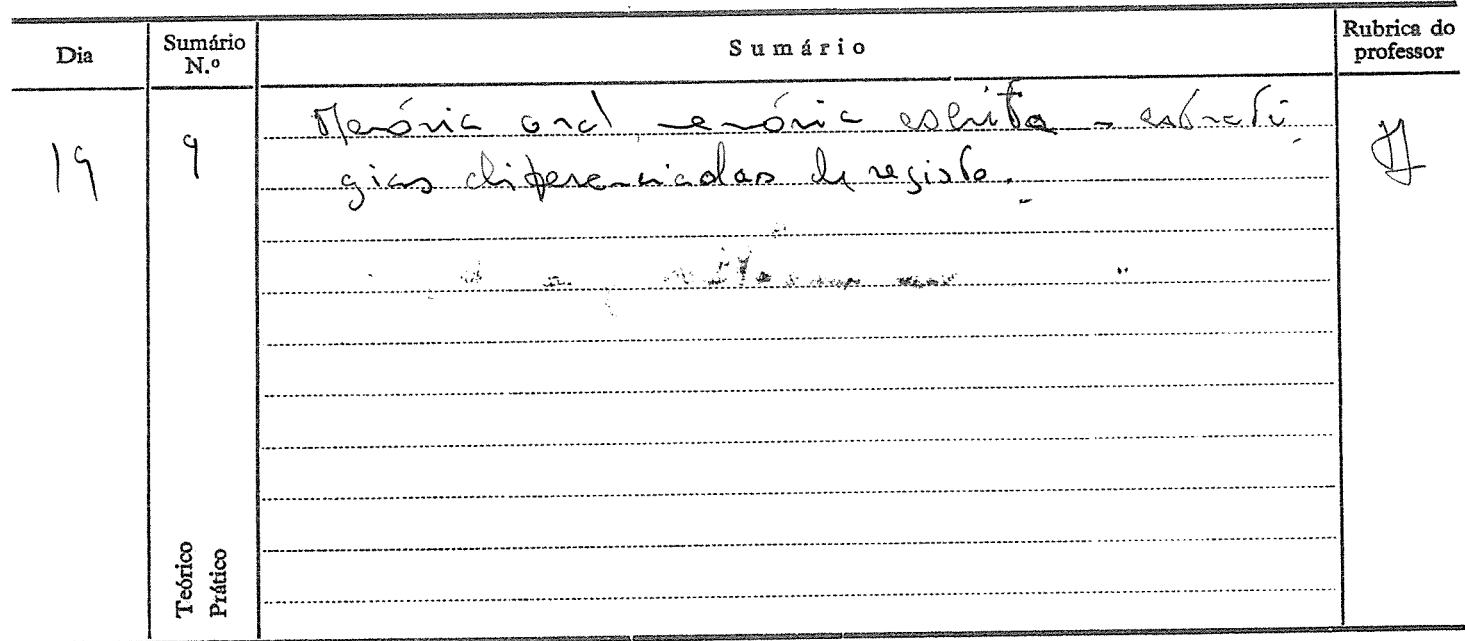 Dia
Sumário N.º
Sumário
Rubrica do professor
19
9
Memória oral, memória escrita - estraté
gias diferenciadas de registo.
Teórico
Prático